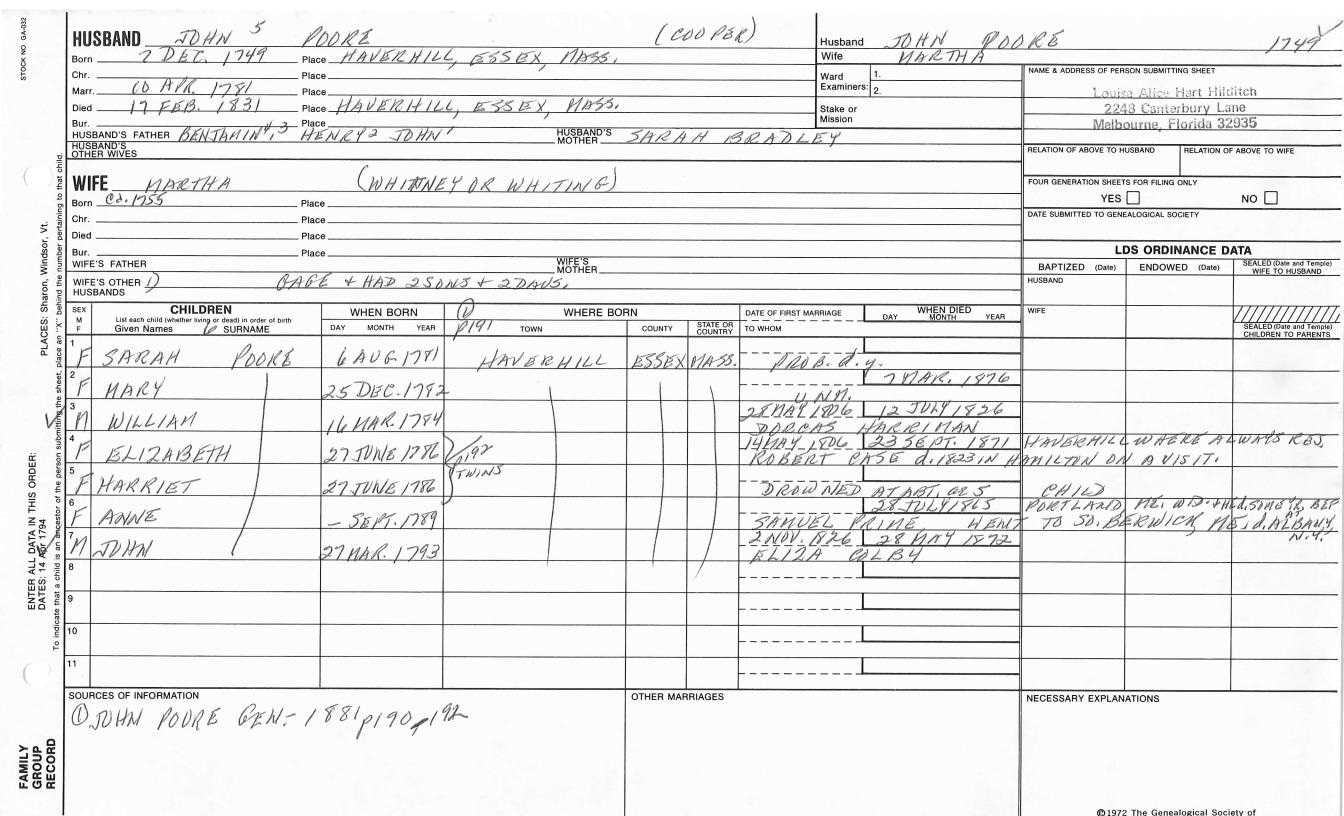 STOCK NO. GA-032
HUSBAND JOHN 5 POORE (COOPER)
Born 7 DEC. 1749 Place HAVERHILL, ESSEX, MASS.
Chr. Place
Marr. 10 APR. 1781 Place
Died 17 FEB. 1831 Place HAVERHILL, ESSEX, MASS.
Bur. Place
HUSBAND'S FATHER BENJAMIN 4, 3 HENRY 2 JOHN 1 HUSBAND'S MOTHER SARAH BRADLEY
HUSBAND'S OTHER WIVES
WIFE MARTHA (WHITNEY OR WHITING)
Born Ca. 1755 Place
Chr. Place
Died Place
Bur. Place
WIFE'S FATHER WIFE'S MOTHER
WIFE'S OTHER HUSBANDS 1) GAGE + HAD 2 SONS + 2 DAUS.
Husband JOHN POORE 1749
Wife MARTHA
Ward Examiners: 1.
2.
Stake or Mission
NAME & ADDRESS OF PERSON SUBMITTING SHEET
Louisa Alice Hart Hilditch
2248 Canterbury Lane
Melbourne, Florida 32935
RELATION OF ABOVE TO HUSBAND RELATION OF ABOVE TO WIFE
FOUR GENERATION SHEETS FOR FILING ONLY
YES NO
DATE SUBMITTED TO GENEALOGICAL SOCIETY
LDS ORDINANCE DATA
BAPTIZED (Date) ENDOWED (Date) SEALED (Date and Temple) WIFE TO HUSBAND
HUSBAND
WIFE
SEALED (Date and Temple) CHILDREN TO PARENTS
SEX M F CHILDREN WHEN BORN WHERE BORN DATE OF FIRST MARRIAGE WHEN DIED
List each child (whether living or dead) in order of birth
Given Names 6 SURNAME DAY MONTH YEAR ① p191 TOWN COUNTY STATE OR COUNTRY TO WHOM DAY MONTH YEAR
1 F SARAH POORE 6 AUG 1781 HAVERHILL ESSEX MASS. PROB. d.y.
2 F MARY 25 DEC. 1782 7 MAR. 1876
UNM.
3 M WILLIAM 16 MAR. 1784 28 MAY 1806 12 JULY 1826
DORCAS HARRIMAN
4 F ELIZABETH 27 JUNE 1786 p192 14 MAY 1806 23 SEPT. 1871 HAVERHILL WHERE ALWAYS RES.
ROBERT CASE d. 1823 IN HAMILTON ON A VISIT.
TWINS
5 F HARRIET 27 JUNE 1786 DROWNED AT ABT. AE 5 CHILD
6 F ANNE – SEPT. 1789 28 JULY 1865 PORTLAND ME.
SAMUEL PRIME, WENT TO SO. BERWICK, ME, d. AT ALBANY, N.Y.
7 M JOHN 27 MAR. 1793 2 NOV. 1826 28 MAY 1872
ELIZA COLBY
8
9
10
11
SOURCES OF INFORMATION
① JOHN POORE GEN.- 1881 p190, p192
OTHER MARRIAGES
NECESSARY EXPLANATIONS
©1972 The Genealogical Society of
FAMILY GROUP RECORD
ENTER ALL DATA IN THIS ORDER:
DATES: 14 Apr 1794
PLACES: Sharon, Windsor, Vt.
To indicate that a child is an ancestor of the person submitting the sheet, place an "X" behind the number pertaining to that child.